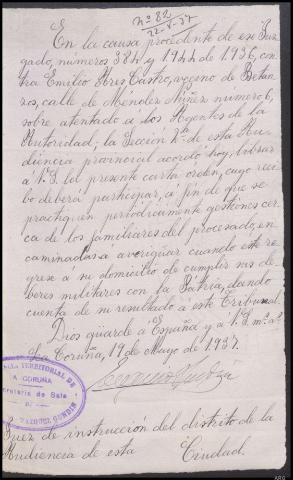 nº 82
22-5-37
En la causa procedente de ese Juz-
gado, números 384 y 1944 de 1936, con-
tra Emilio Ares Castro, vecino de Betan-
zos, calle de Méndez Núñez número 6,
sobre atentado a los Agentes de la
Autoridad; la Sección 2ª de esta Au-
diencia provincial acordó hoy, librar
a V.S. la presente carta orden, cuyo reci-
bo deberá participar, a fin de que se
practiquen periódicamente gestiones cer-
ca de los familiares del procesado, en-
caminadas a averiguar cuando este re-
grese a su domicilio de cumplir sus de-
beres militares con la Patria, dando
cuenta de su resultado a este Tribunal.
Dios guarde a España y a V.S. m.ˢ a.ˢ
La Coruña, 19 de Mayo de 1937.
TERRITORIAL DE
A CORUÑA
Secretaría de Sala
DE
VAZQUEZ GUNDIN
Juez de instrucción del distrito de la
Audiencia de esta Ciudad.